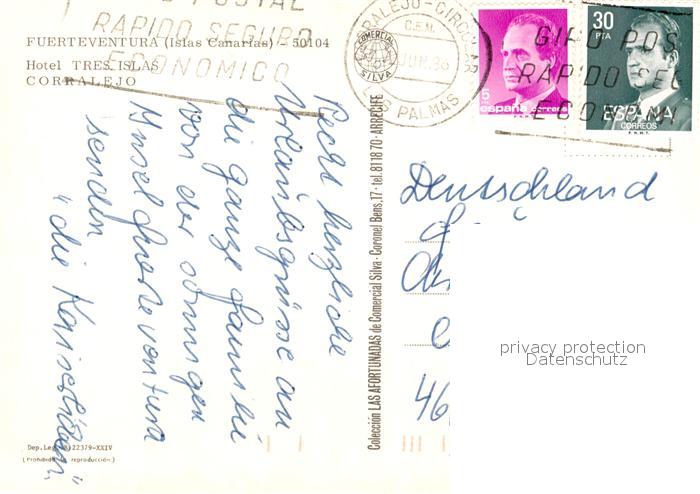 FUERTEVENTURA (Islas Canarias) - 50104
Hotel TRES ISLAS
CORRALEJO
POSTAL
RAPIDO SEGURO
ECONOMICO
CORRALEJO-CIRCULAR
C.E.M.
COMERCIAL
SILVA
JUN. 86
LAS PALMAS
5
españa correos
30
PTA
ESPAÑA
CORREOS
F.N.M.T.
GIRO POS
RAPIDO SEG
ECONOMI
Recht herzliche
Urlaubsgrüsse an
die ganze Familie
von der sonnigen
Insel Fuerteventura
senden
"die Karischken"
Colección LAS AFORTUNADAS de Comercial Silva - Coronel Bens, 17 - tel. 81 18 70 - ARRECIFE
Deutschland
46
privacy protection
Datenschutz
Dep. Leg. 22379-XXIV
(Prohibida la reproducción)